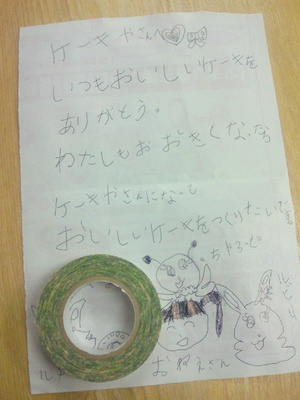 ケーキやさんへ
いつもおいしいケーキを
ありがとう。
わたしもおおきくなったら
ケーキやさんになって
おいしいケーキをつくりたいです
おねえさん